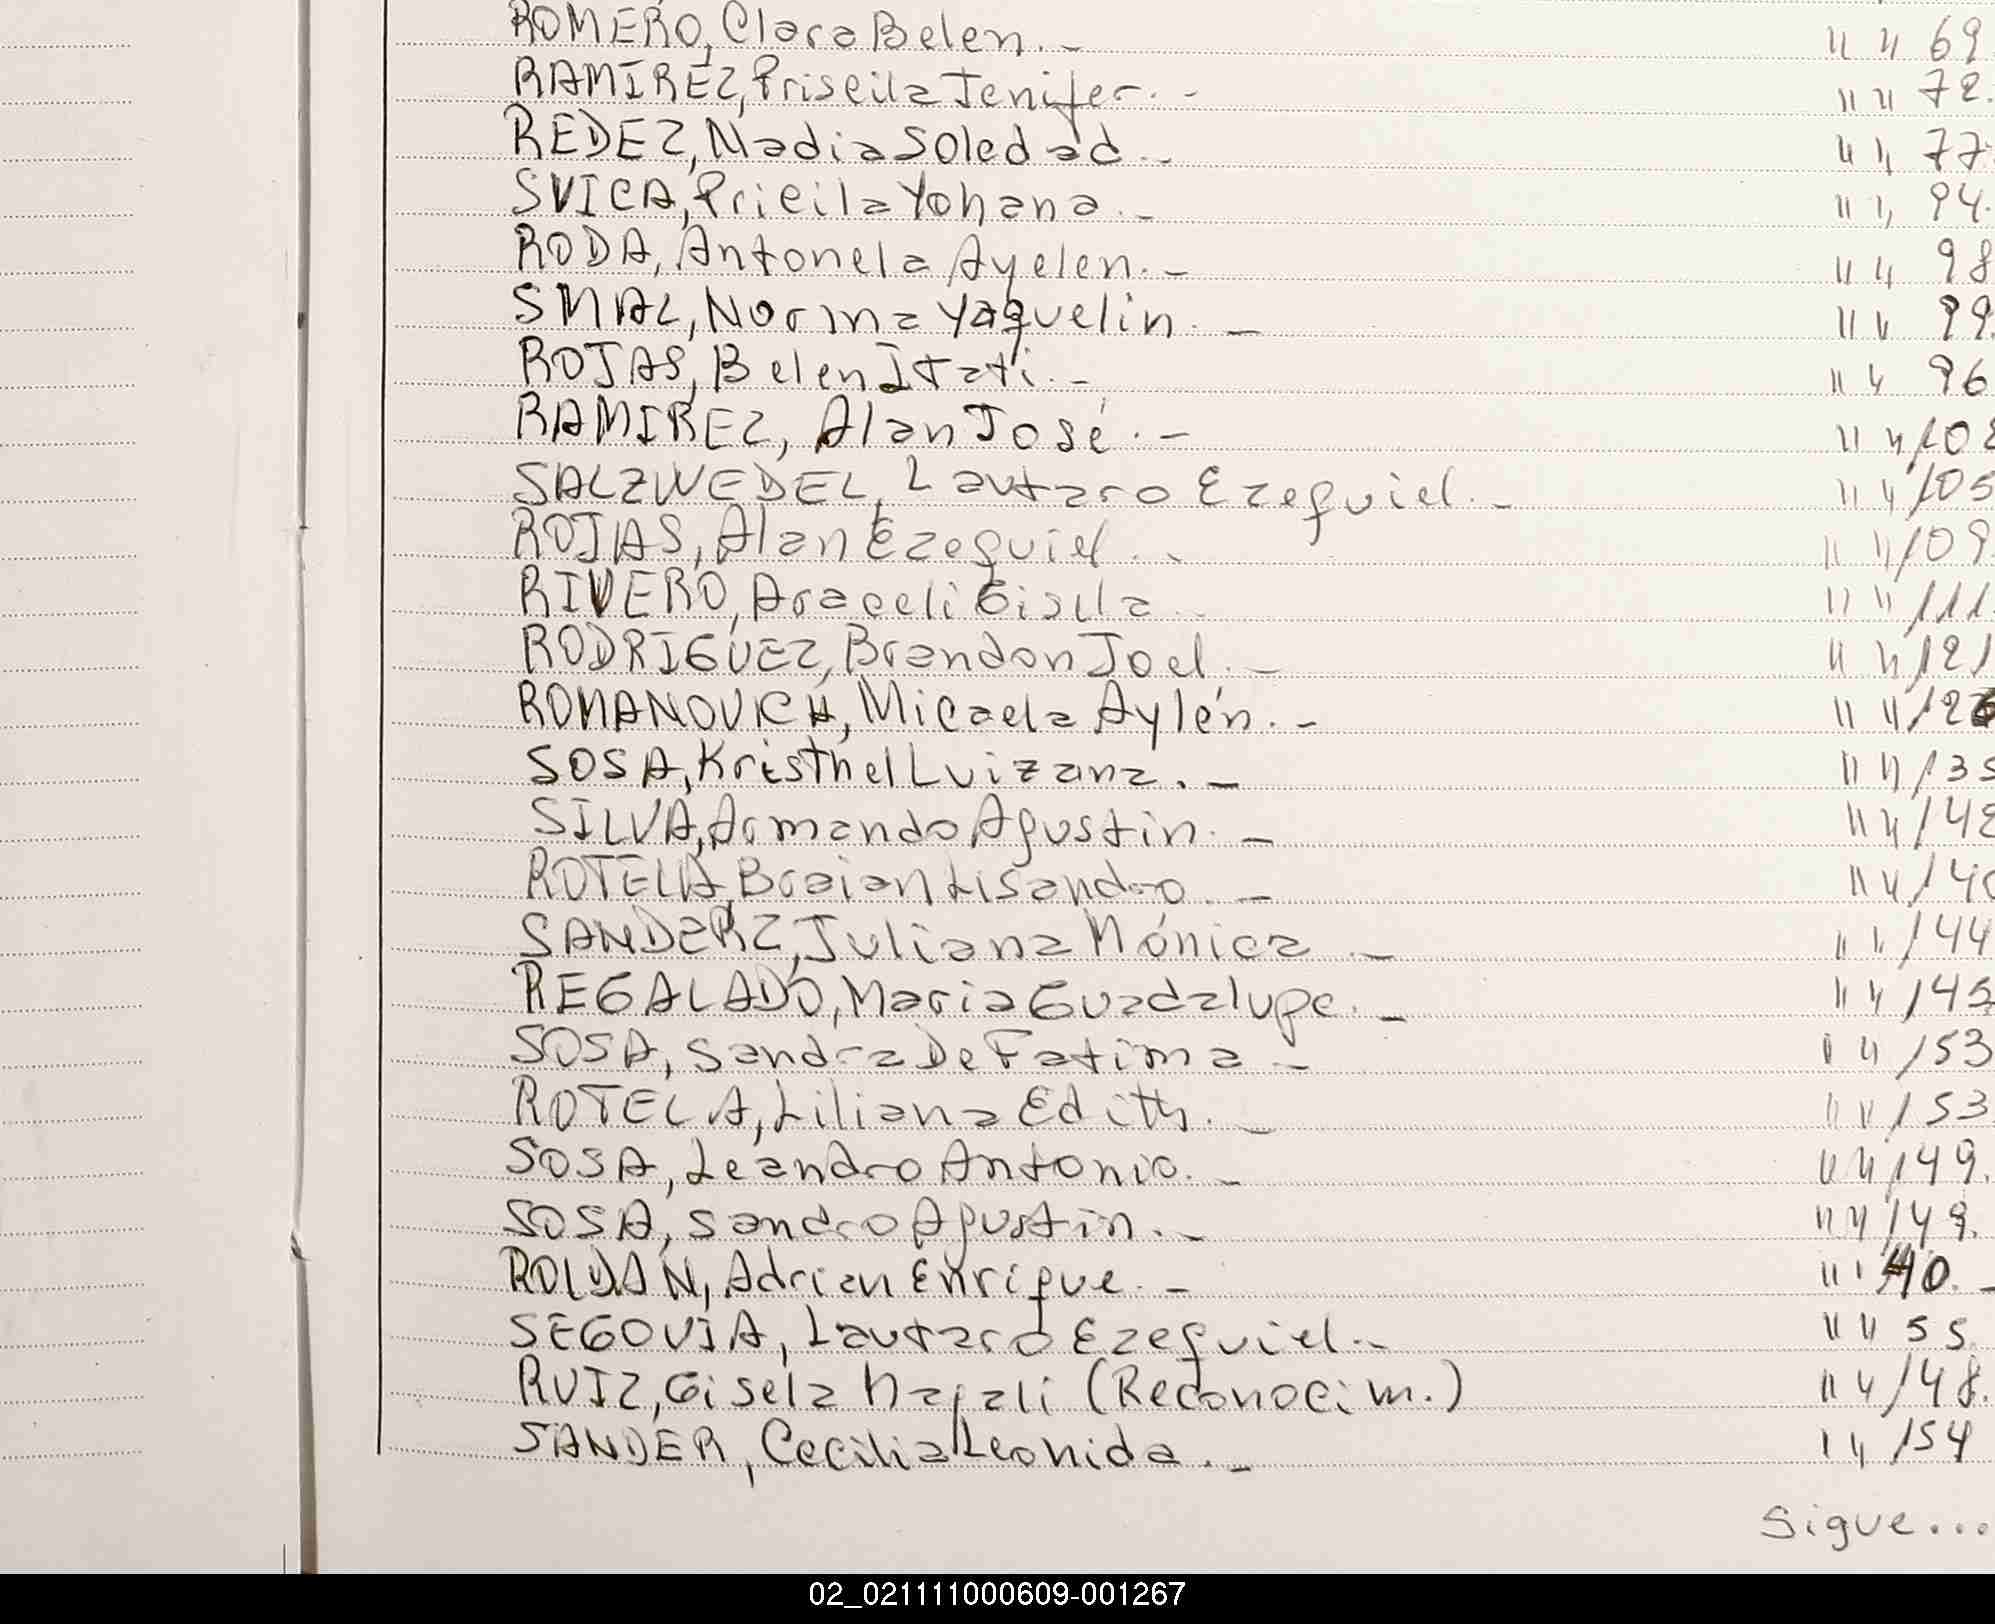 ROMERO, Clara Belen.- " " 69.
RAMIREZ, Priscila Jenifer.- " " 72.
REDEZ, Nadia Soledad.- " " 77.
SVICA, Pricila Yohana.- " " 94.
RODA, Antonela Ayelen.- " " 98
SMAL, Norma Yaquelin.- " " 99.
ROJAS, Belen Itati.- " " 96
RAMIREZ, Alan José.- " " 102
SALZWEDEL, Lautaro Ezequiel.- " " 105
ROJAS, Alan Ezequiel.- " " 109
RIVERO, Araceli Gisela.- " " 111.
RODRIGUEZ, Brandon Joel.- " " 121
ROMANOVICH, Micaela Aylén.- " " 126
SOSA, Kristhel Luizana.- " " 135
SILVA, Armando Agustin.- " " 142
ROTELA, Braian Lisandro.- " " 140
SANDERZ, Juliana Mónica.- " " 144
REGALADO, Maria Guadalupe.- " " 145
SOSA, Sandra De Fatima - " " 153
ROTELA, Liliana Edith.- " " 153
SOSA, Leandro Antonio.- " " 149.
SOSA, Sandro Agustin.- " " 149.
ROLDAN, Adrian Enrique.- " " 40.-
SEGOVIA, Lautaro Ezequiel.- " " 55.
RUIZ, Gisela Magali (Reconocim.) " " 148.
SANDER, Cecilia Leonida.- " " 154
Sigue...
02_021111000609-001267